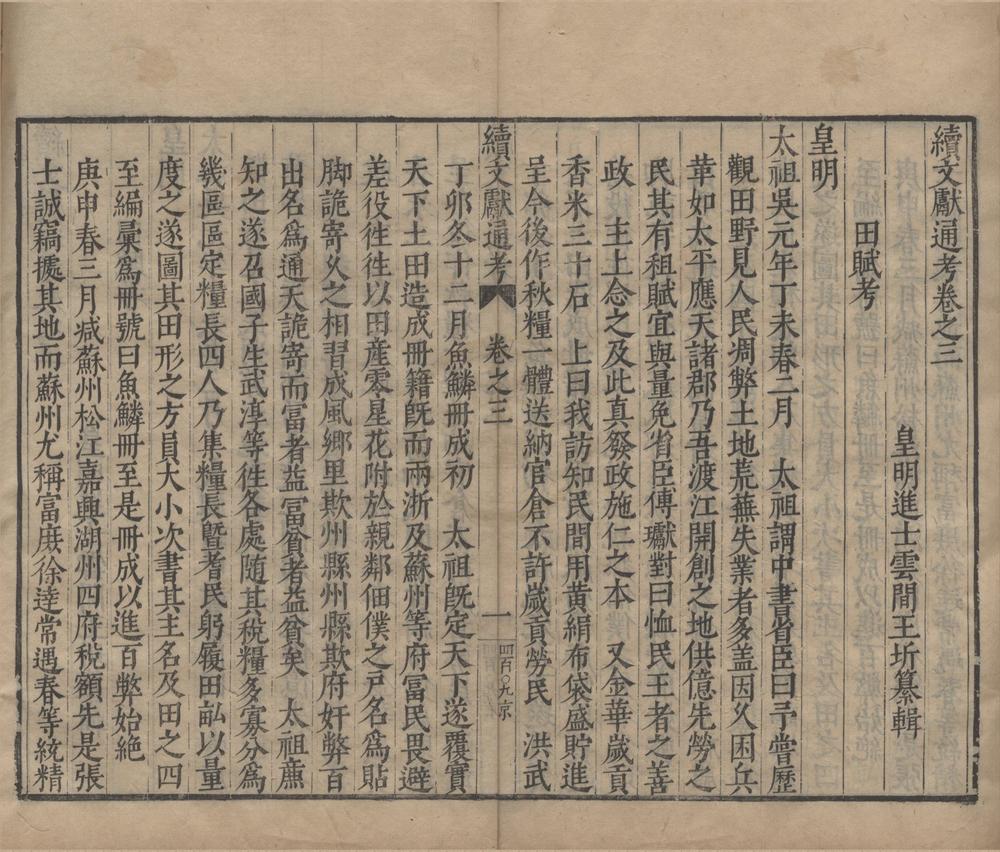 續文獻通考卷之三
皇明進士雲間王圻纂輯
田賦考
皇明
太祖吳元年丁未春二月　太祖謂中書省臣曰予嘗歷
觀田野見人民凋弊土地荒蕪失業者多盖因久困兵
革如太平應天諸郡乃吾渡江開創之地供億先勞之
民其有租賦宜與量免省臣傅瓛對曰恤民王者之善
政　主上念之及此真發政施仁之本　又金華歲貢
香米三十石　上曰我訪知民間用黃絹布袋盛貯進
呈今後作秋糧一體送納官倉不許歲貢勞民　洪武
續文獻通考　卷之三　一　四百〇九　京
丁卯冬十二月魚鱗冊成初　太祖既定天下遂覆實
天下土田造成冊籍既而兩浙及蘇州等府富民畏避
差役徃徃以田産零星花附於親鄰佃僕之戶名為貼
脚詭寄久之相習成風鄉里欺州縣州縣欺府奸弊百
出名為通天詭寄而富者益富貧者益貧矣　太祖廉
知之遂召國子生武淳等徃各處随其稅糧多寡分為
幾區區定糧長四人乃集糧長曁耆民躬履田畝以量
度之遂圖其田形之方員大小次書其主名及田之四
至編彙為冊號曰魚鱗冊至是冊成以進百弊始絶
庚申春三月减蘇州松江嘉興湖州四府稅額先是張
士誠竊據其地而蘇州尤稱富庶徐逹常遇春等統精